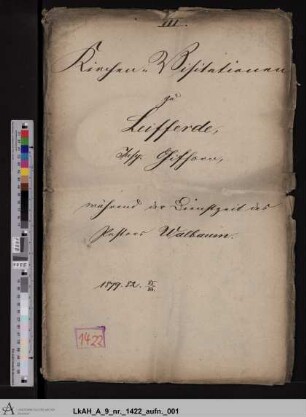 III.
Kirchen-Visitationen
zu
Leifferde,
Insp. Gifhorn,
während der Dienstzeit des
Pastors Walbaum.
1879. 82.
1422
LkAH_A_9_nr._1422_aufn._001